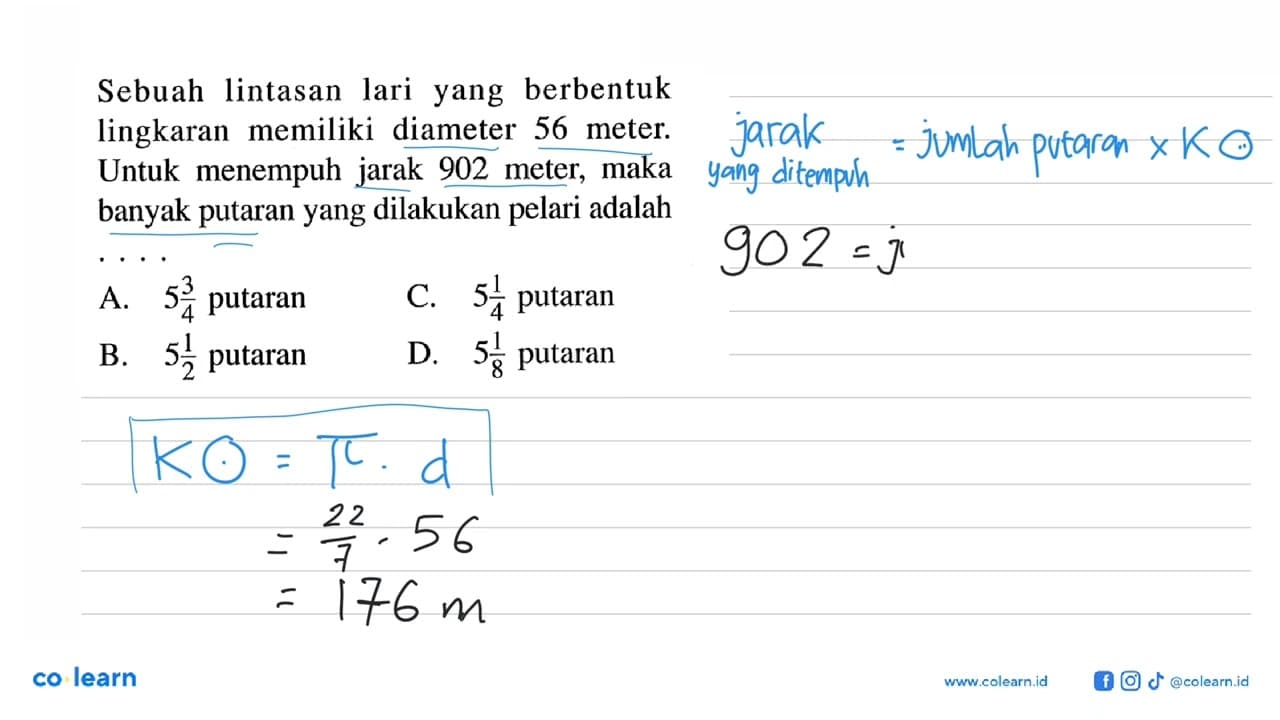 Sebuah lintasan lari yang berbentuk
lingkaran memiliki diameter 56 meter.
Untuk menempuh jarak 902 meter, maka
banyak putaran yang dilakukan pelari adalah
. . . .
A. 5 3/4 putaran
B. 5 1/2 putaran
C. 5 1/4 putaran
D. 5 1/8 putaran
K⊙ = π · d
= 22/7 · 56
= 176 m
jarak yang ditempuh = jumlah putaran × K⊙
902 = j
co learn
www.colearn.id
@colearn.id